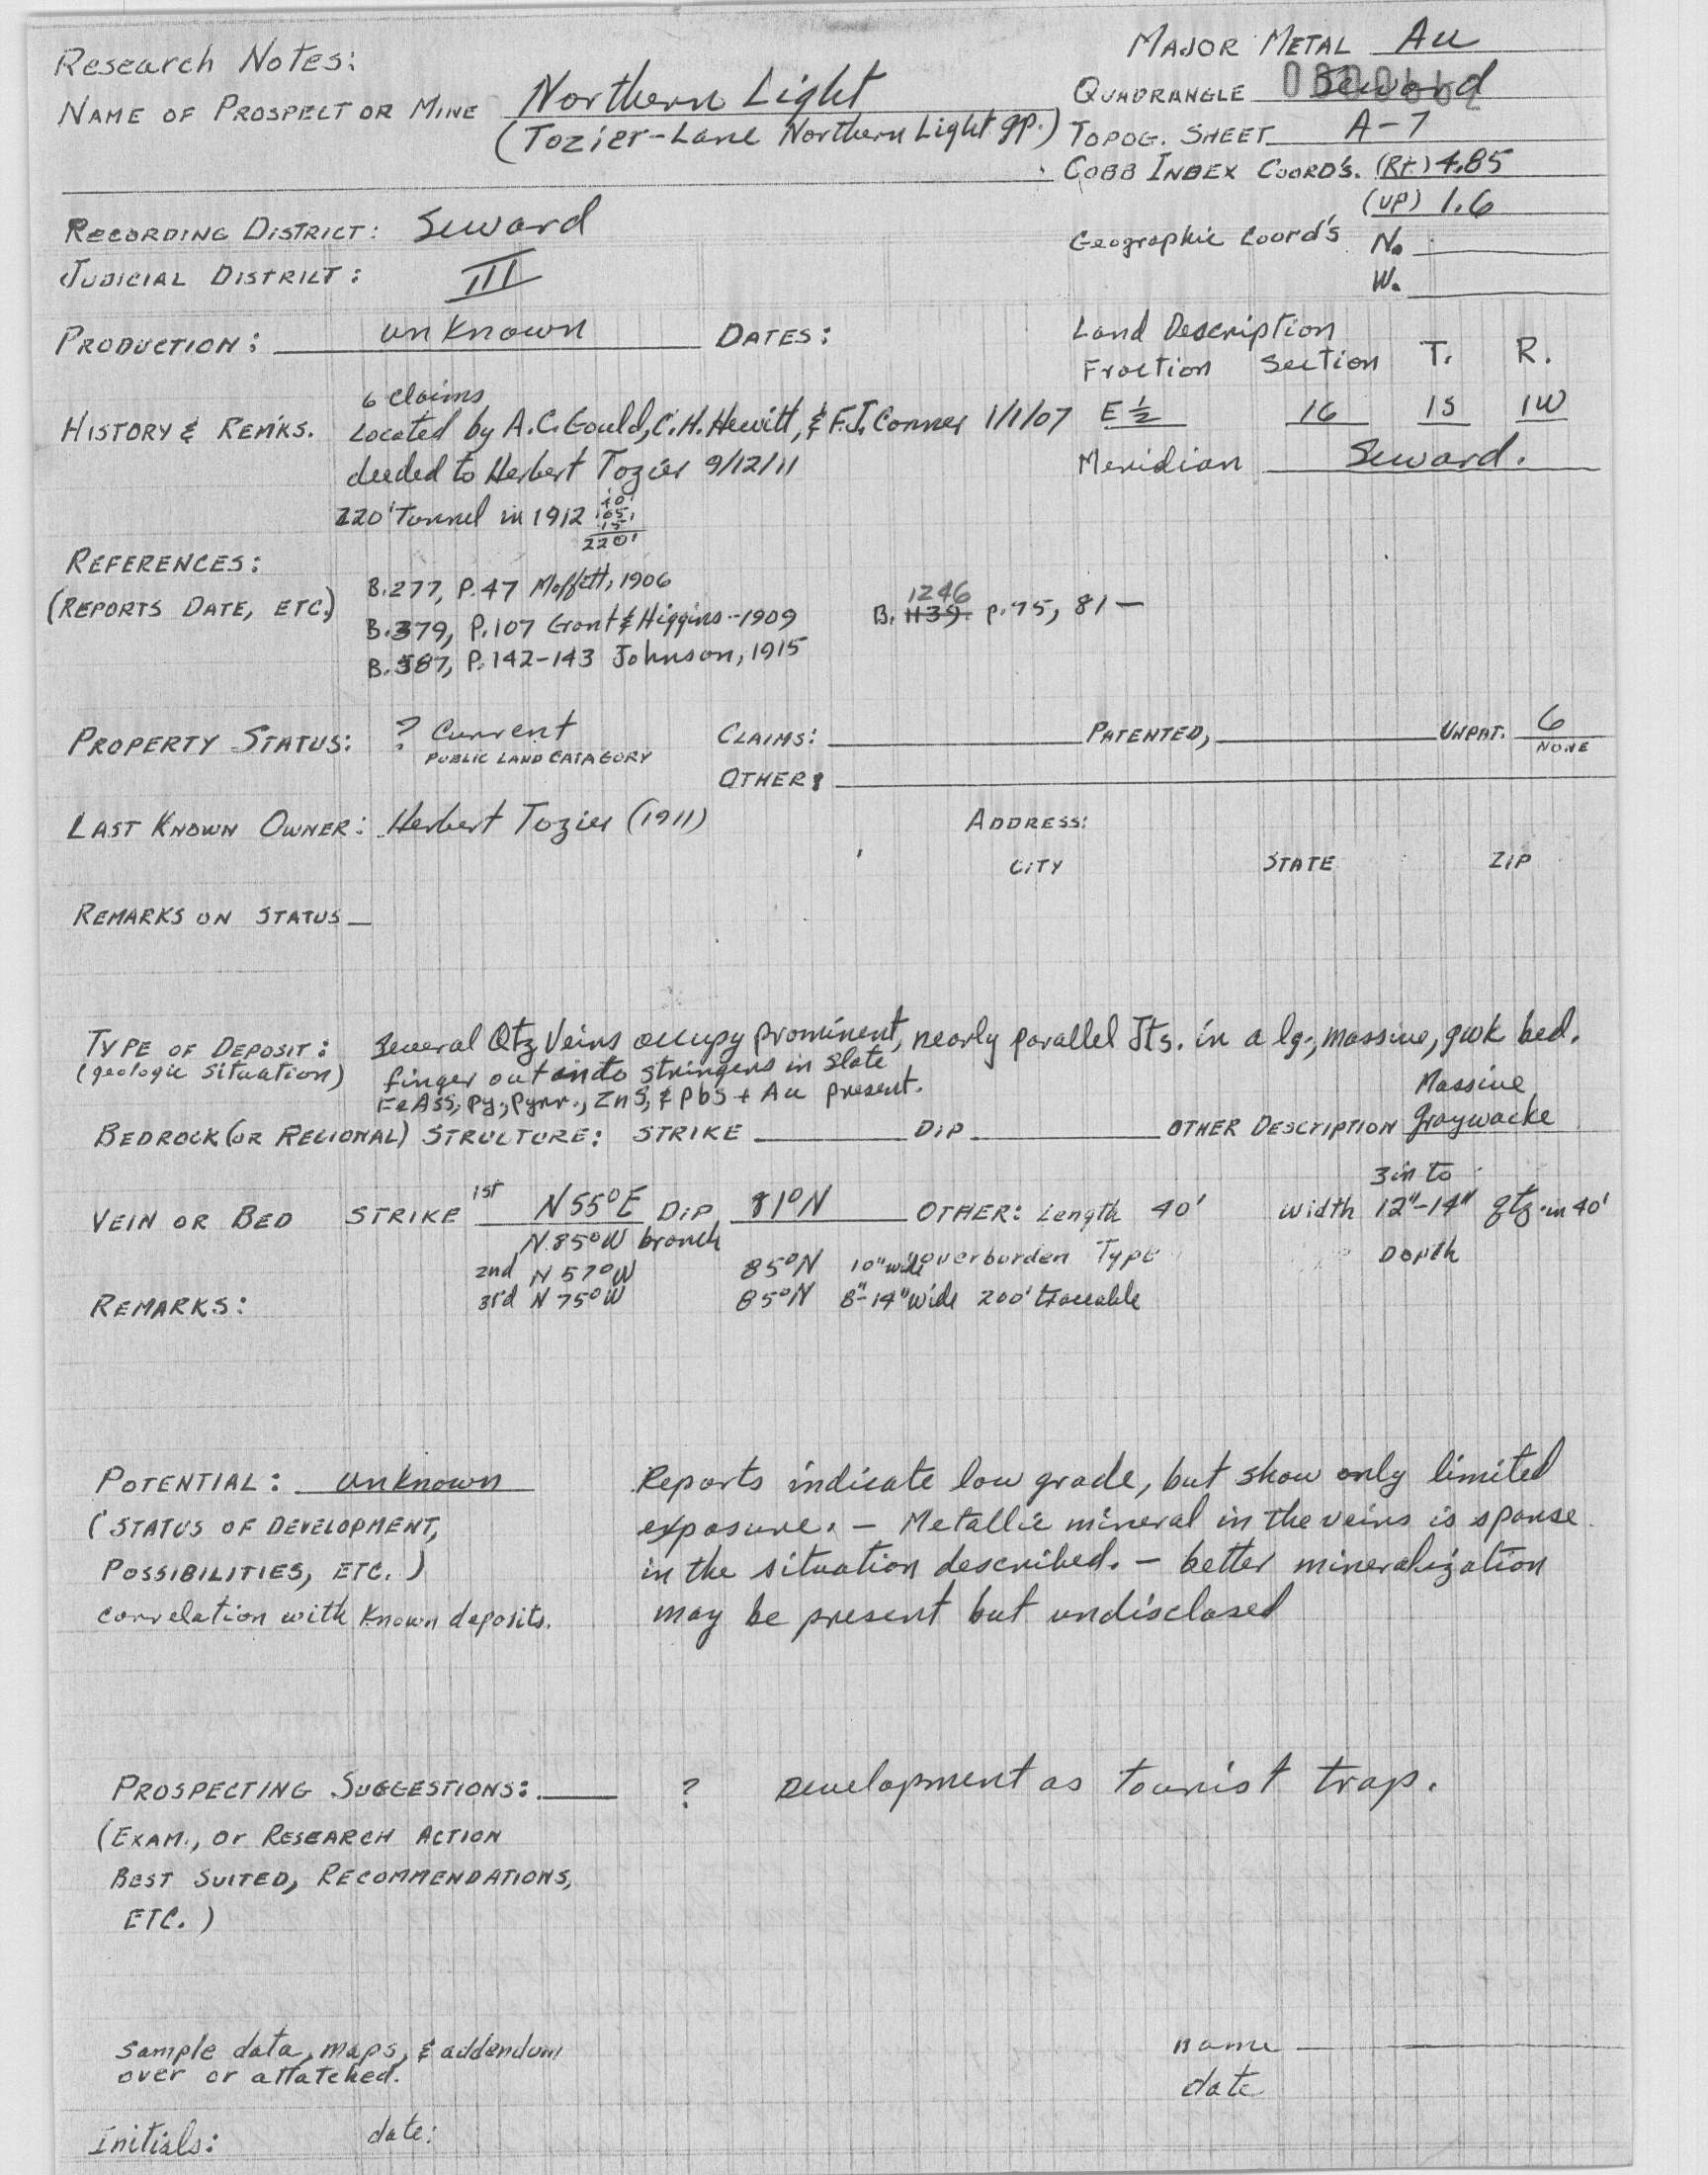 Research Notes:
MAJOR METAL Au
NAME OF PROSPECT OR MINE Northern Light
QUADRANGLE Seward
(Tozier-Lane Northern Light gp.)
TOPOG. SHEET A-7
COBB INDEX COORD'S. (Rt.) 4.85
(UP) 1.6
RECORDING DISTRICT: Seward
Geographic Coord's N.
W.
JUDICIAL DISTRICT: III
PRODUCTION: unknown DATES:
Land Description
Fraction Section T. R.
E 1/2 16 1S 1W
Meridian Seward.
6 claims
HISTORY & REMKS. Located by A.C. Gould, C.H. Hewitt, & F.J. Conner 1/1/07
deeded to Herbert Tozier 9/12/11
220' Tunnel in 1912
15
220'
REFERENCES:
(REPORTS DATE, ETC.)
B.277, P.47 Moffett, 1906
B.379, P.107 Grant & Higgins--1909
B.587, P.142-143 Johnson, 1915
1246
B. 1139. p.75, 81—
PROPERTY STATUS: ? Current CLAIMS: PATENTED, UNPAT. 6
PUBLIC LAND CATAGORY NONE
OTHER:
LAST KNOWN OWNER: Herbert Tozier (1911) ADDRESS:
CITY STATE ZIP
REMARKS ON STATUS
TYPE OF DEPOSIT: Several Qtz Veins occupy prominent, nearly parallel Jts. in a lg., massive, gwk bed.
(geologic situation) finger out into stringers in slate
FeAsS, Py., Pyrr., ZnS, & PbS + Au present.
Massive
BEDROCK (OR REGIONAL) STRUCTURE: STRIKE DIP OTHER DESCRIPTION graywacke
3in to
VEIN OR BED STRIKE 1st N55°E DIP 81°N OTHER: Length 40' width 12"-14" qtz. in 40'
N.85°W branch
2nd N 57°W 85°N 10" wide overburden Type Depth
REMARKS: 3rd N 75°W 85°N 8"-14" wide 200' traceable
POTENTIAL: unknown
(STATUS OF DEVELOPMENT,
POSSIBILITIES, ETC.)
correlation with known deposits.
Reports indicate low grade, but show only limited
exposure. — Metallic mineral in the veins is sparse
in the situation described. — better mineralization
may be present but undisclosed
PROSPECTING SUGGESTIONS: ? Development as tourist trap.
(EXAM., or RESEARCH ACTION
BEST SUITED, RECOMMENDATIONS,
ETC.)
sample data, maps, & addendum
over or attatched.
name
date
Initials: date: